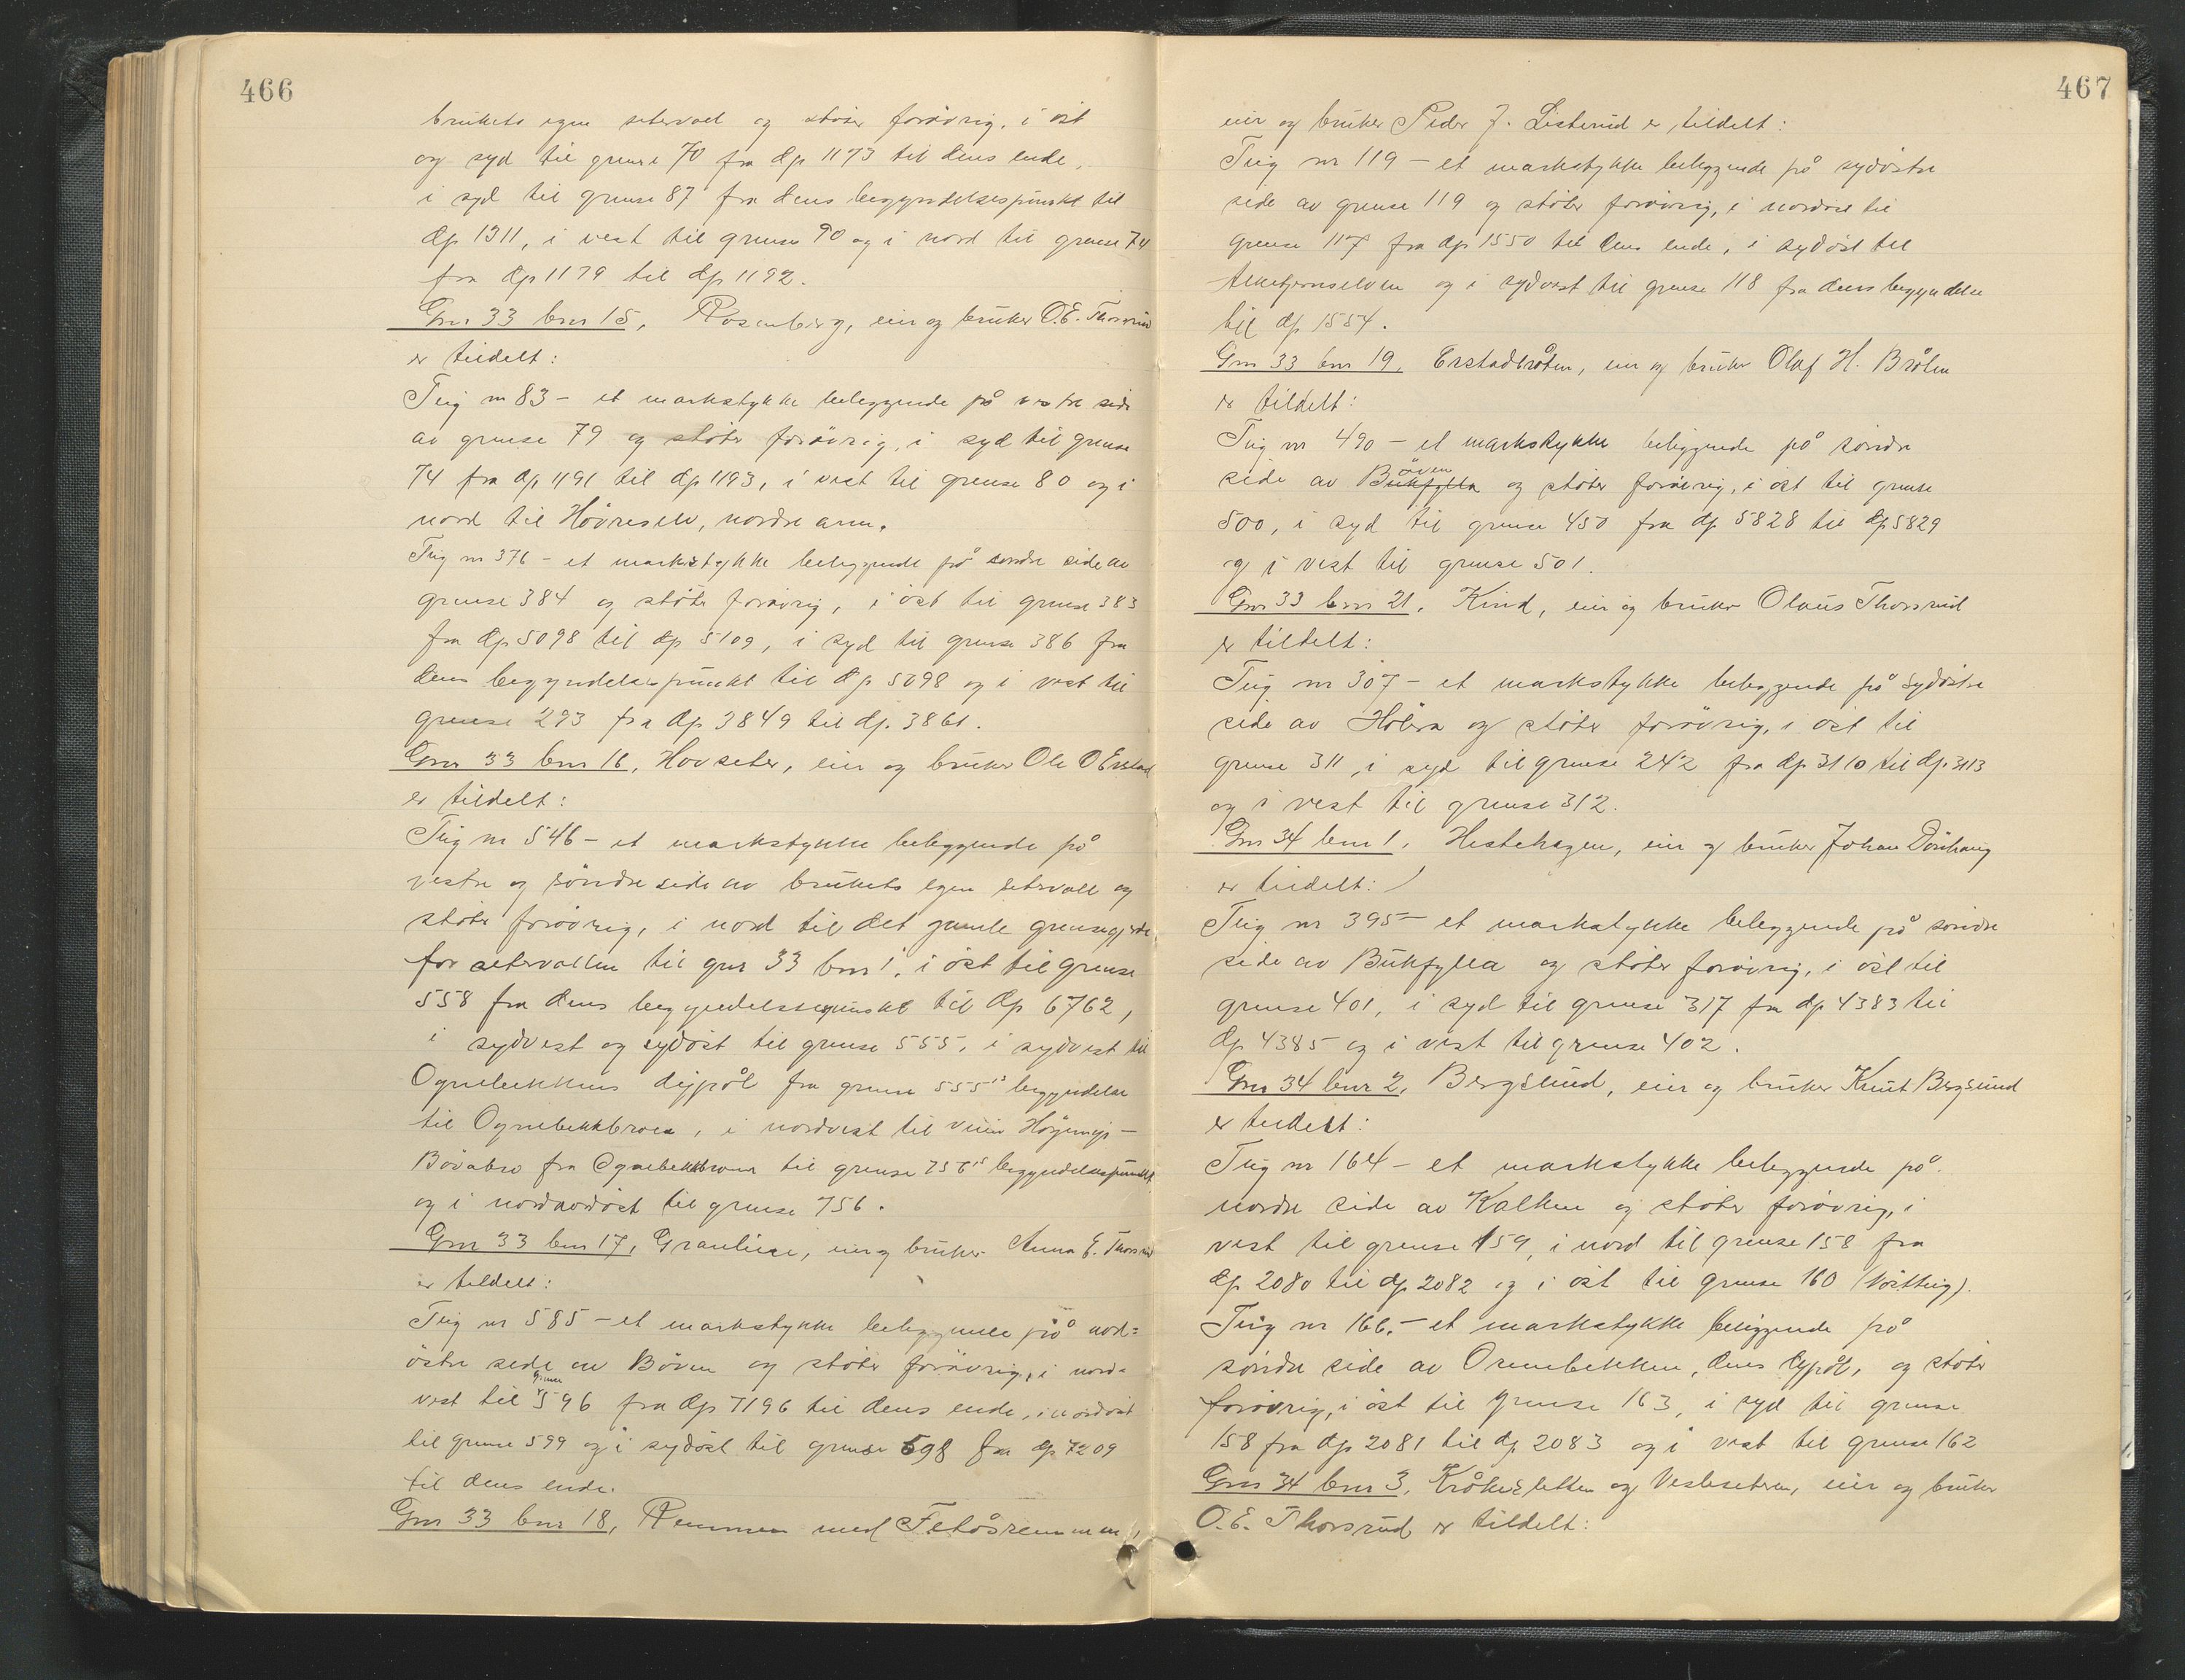 466
brukets egen setervoll og støter forøvrig, i øst
og syd til grense 70 fra dp 1173 til dens ende,
i syd til grense 87 fra dens begyndelsespunkt til
dp 1311, i vest til grense 90 og i nord til grense 74
fra dp 1179 til dp 1192.
Gnr 33 bnr 15, Rosenberg, eier og bruker O.E. Thorsrud
er tildelt:
Teig nr 83 – et markstykke beliggende på vestre side
av grense 79 og støter forøvrig, i syd til grense
74 fra dp 1191 til dp 1193, i vest til grense 80 og i
nord til Høvreselv, nordre arm.
Teig nr 376 – et markstykke beliggende på søndre side av
grense 384 og støter forøvrig, i øst til grense 383
fra dp 5098 til dp 5109, i syd til grense 386 fra
dens begyndelsespunkt til dp 5098 og i vest til
grense 293 fra dp 3849 til dp. 3861.
Gnr 33 bnr 16, Hovseter, eier og bruker Ole O Erstad
er tildelt:
Teig nr 546 – et markstykke beliggende på
vestre og søndre side av brukets egen setervoll og
støter forøvrig, i nord til det gamle grensegjerde
for setervollen til gnr 33 bnr 1, i øst til grense
558 fra dens begyndelsespunkt til dp 6762,
i sydvest og sydøst til grense 555, i sydvest til
Ognebekkens dypål fra grense 555's begyndelse
til Ognebekkbroen, i nordvest til veien
Bøvabro fra Ognebekkbroen til grense 756's begyndelsespunkt
og i nordnordøst til grense 756.
Gnr 33 bnr 17, Granliene, eier og bruker Anna E. Thorsrud
er tildelt:
Teig nr 585 – et markstykke beliggende på nord=
østre side av Bøven og støter forøvrig, i nord=
vest til grense 596 fra dp 7196 til dens ende, i nordøst
til grense 599 og i sydøst til grense 598 fra dp 7209
til dens ende.
Gnr 33 bnr 18, Remmen med Fetåsremmen,
467
eier og bruker Peder J. Listerud er tildelt:
Teig nr 119 – et markstykke beliggende på sydøstre
side av grense 119 og støter forøvrig, i nordøst til
grense 117 fra dp 1550 til dens ende, i sydøst til
og i sydvest til grense 118 fra dens begyndelse
til dp 1554.
Gnr 33 bnr 19, Erstadbråten, eier og bruker Olaf H. Bråten
er tildelt:
Teig nr 490 – et markstykke beliggende på søndre
side av Bukfylla øven og støter forøvrig, i øst til grense
500, i syd til grense 450 fra dp 5828 til dp 5829
og i vest til grense 501.
Gnr 33 bnr 21, Kind, eier og bruker Olaus Thorsrud
er tildelt:
Teig nr 307 – et markstykke beliggende på sydøstre
side av Hølera og støter forøvrig, i øst til
grense 311, i syd til grense 242 fra dp. 3110 til dp. 3113
og i vest til grense 312.
Gnr 34 bnr 1, Hestehagen, eier og bruker Johan Dønhaug
er tildelt:
Teig nr 395 – et markstykke beliggende på søndre
side av Bukfylla og støter forøvrig, i øst til
grense 401, i syd til grense 317 fra dp 4383 til
dp 4385 og i vest til grense 402.
Gnr 34 bnr 2, Bergsund, eier og bruker Knut Bergsund
er tildelt:
Teig nr 164 – et markstykke beliggende på
nordre side av Kalken og støter forøvrig, i
vest til grense 159, i nord til grense 158 fra
dp 2080 til dp 2082 og i øst til grense 160
Teig nr 166, – et markstykke beliggende på
søndre side av Orenbekken, dens dypål, og støter
forøvrig, i øst til grense 163, i syd til grense
158 fra dp 2081 til dp 2083 og i vest til grense 162
Gnr 34 bnr 3, Kråkesletten og Vesleseteren, eier og bruker
O.E. Thorsrud er tildelt: